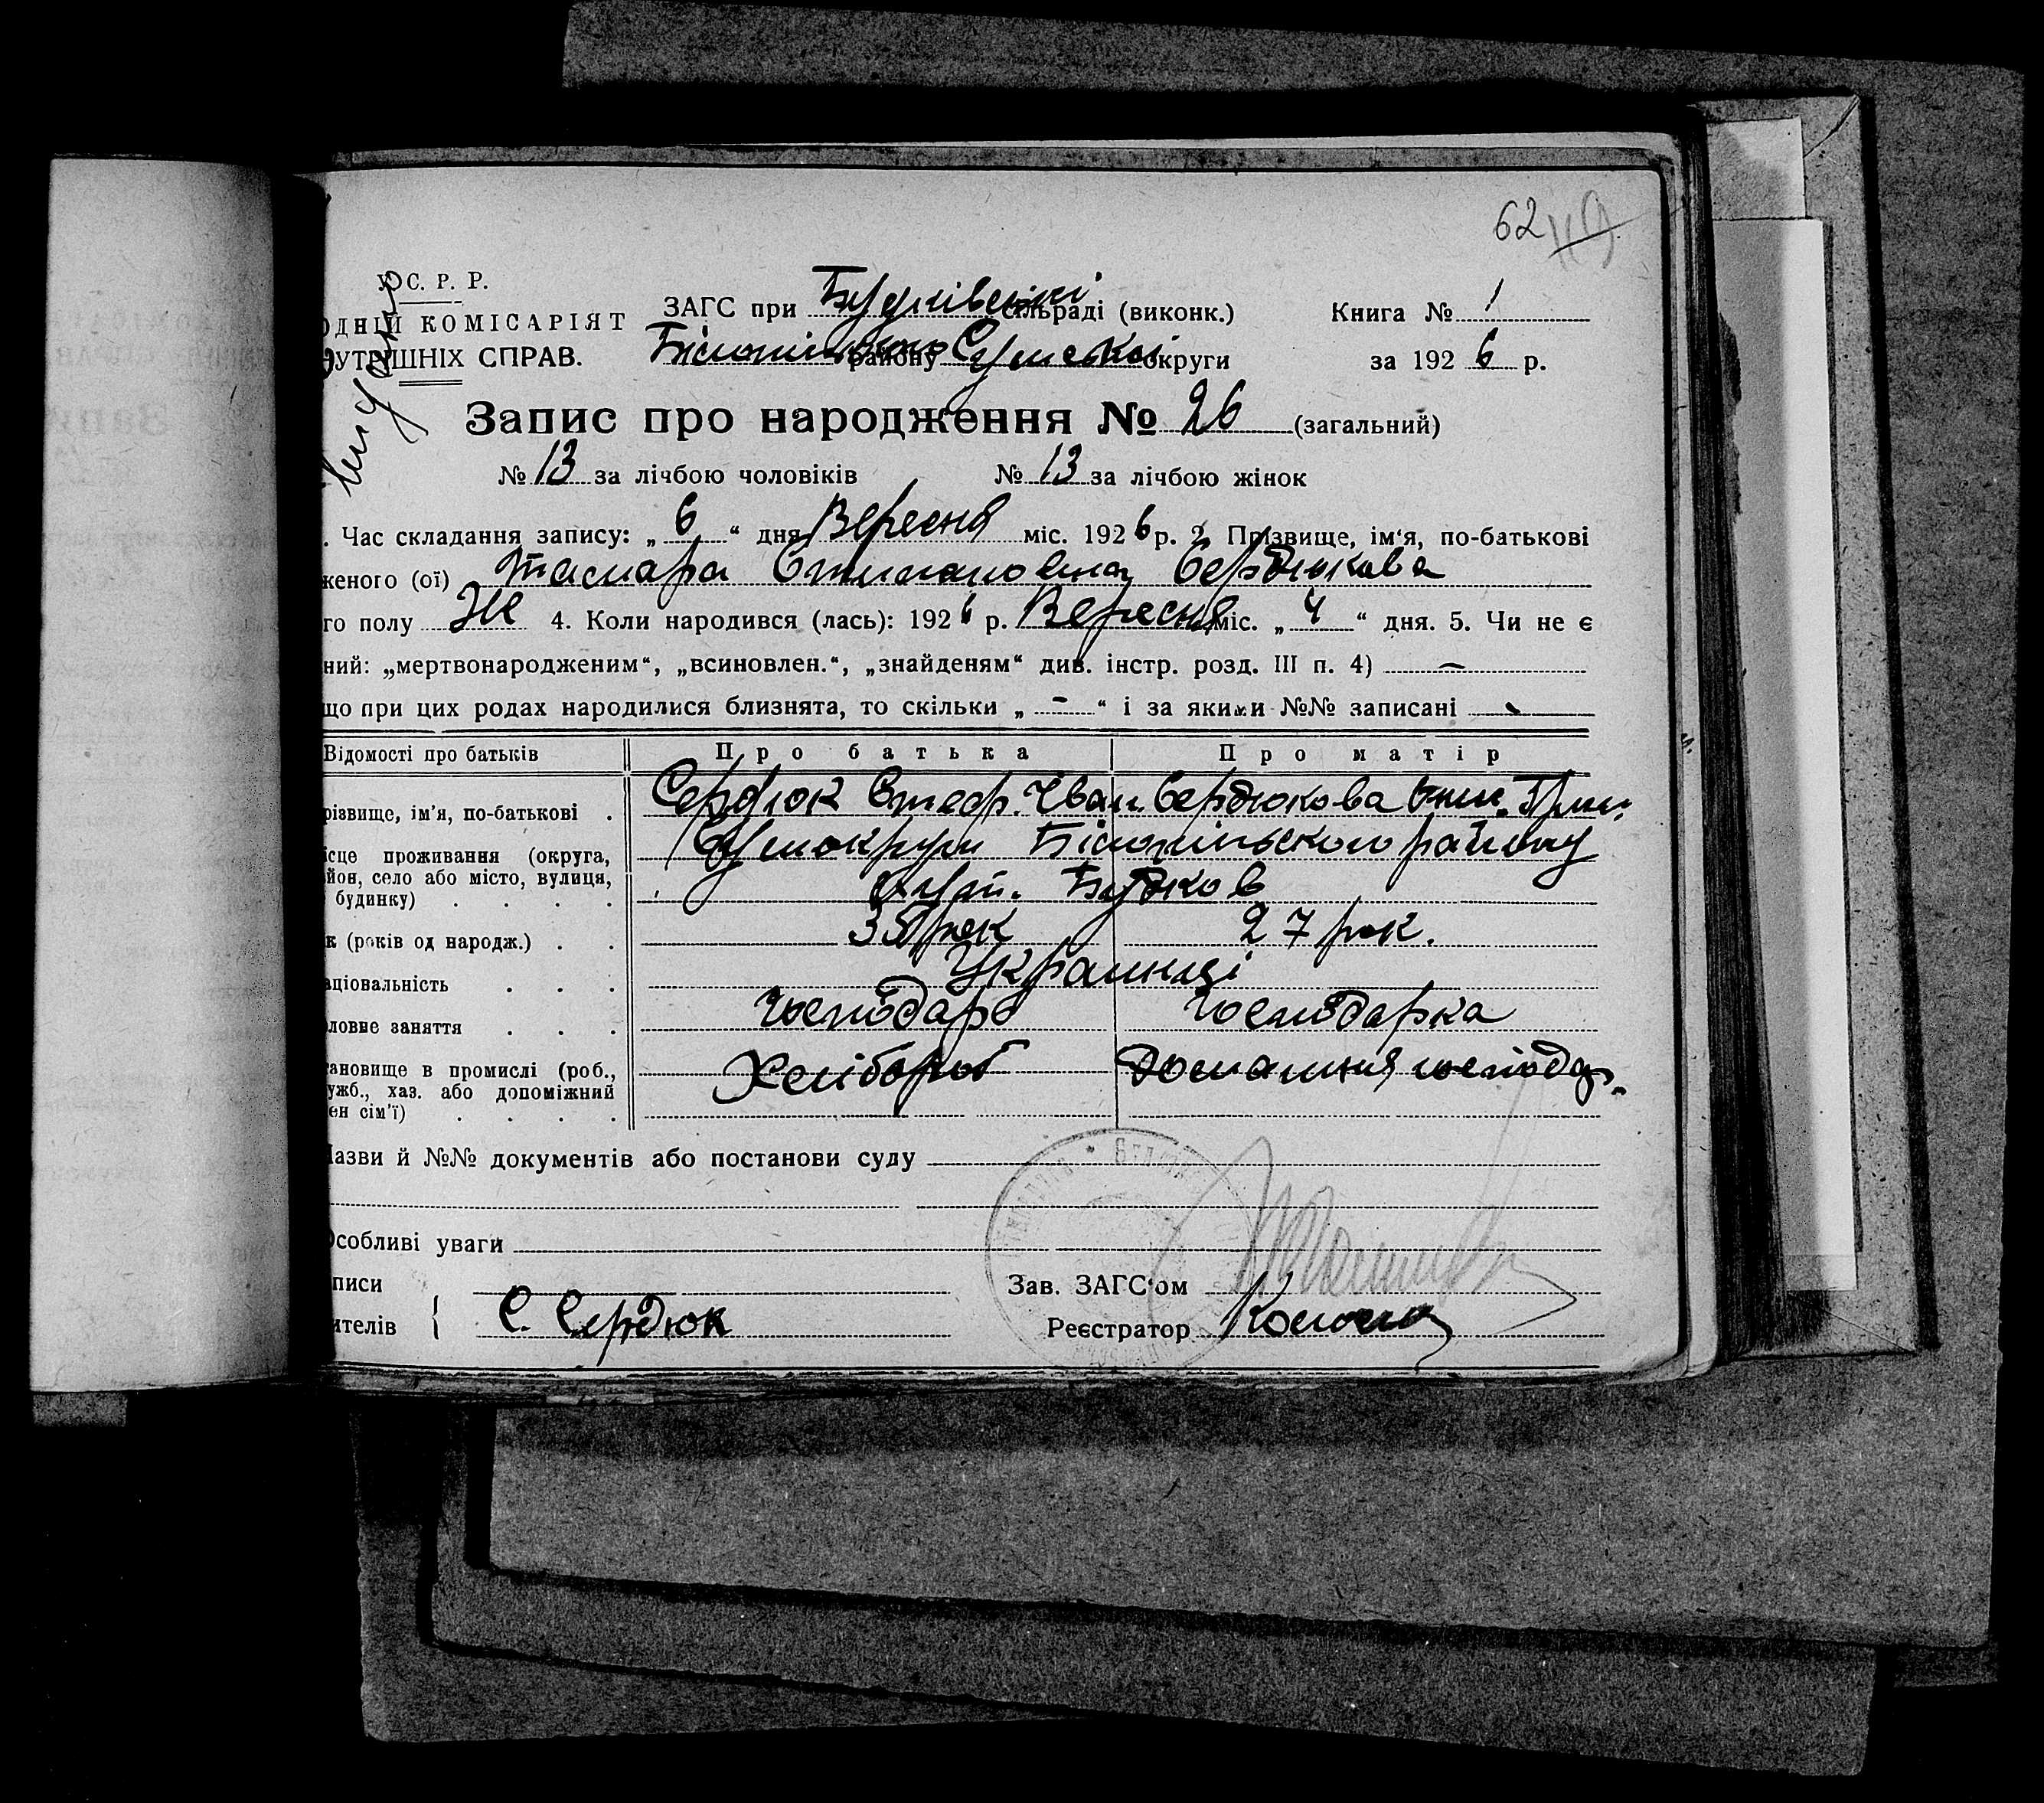 62 119
У С. Р. Р.
ОДНІЙ КОМІСАРІЯТ
УТРІШНІХ СПРАВ.
ЗАГС при Будківські сільраді (виконк.)
Білопільсько району Сумської округи
Книга № 1
за 1926 р.
Запис про народження № 26 (загальний)
№ 13 за лічбою чоловіків № 13 за лічбою жінок
. Час складання запису: „ 6 “ дня Вересня міс. 1926 р. 2. Прізвище, ім'я, по-батькові
женого (ої) Тамара Сердюкова
го полу Ж 4. Коли народився (лась): 1926 р. Вересня міс. „ 4 “ дня. 5. Чи не є
ний: „мертвонародженим“, „всиновлен.“, „знайденям“ див. інстр. розд. III п. 4) —
що при цих родах народилися близнята, то скільки „ - “ і за якими №№ записані -
Відомості про батьків Про батька Про матір
різвище, ім'я, по-батькові . Сердюк Стеф. Іван. Сердюкова Григ.
ісце проживання (округа, Сумокруги Білопільського району
йон, село або місто, вулиця,
будинку) . . . . хут. Будков
к (років од народж.) . . 35 рок 27 рок.
аціональність . . . Українці
ловне заняття . . . Господарь Господарка
ановище в промислі (роб., Хлібороб Домашня господар.
ужб., хаз. або допоміжний
ен сім'ї) . . . .
Назви й №№ документів або постанови суду
Особливі уваги
писи Зав. ЗАГС'ом
ителів { С. Сердюк Реєстратор